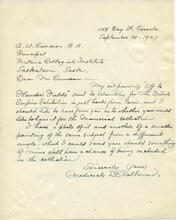 1158 Bay St. Toronto
September 21. 1927
A. W. Cameron B.A.
Principal
Nutana Collegiate Institute
Saskatoon Sask.
Dear Mr. Cameron –
My oil painting "Off to
Flanders' Fields" sent to Wembley for the British
Empire Exhibition is just back from Paris. and I
should like to hear from you as to whether you would
like to have it for the Memorial collection.
I have a photo of it and another of a smaller
painting of the same subject from a different
angle. which I could send you should something of
mine still have a chance of being included
in the collection.
Sincerely Yours
Frederick S. Challener